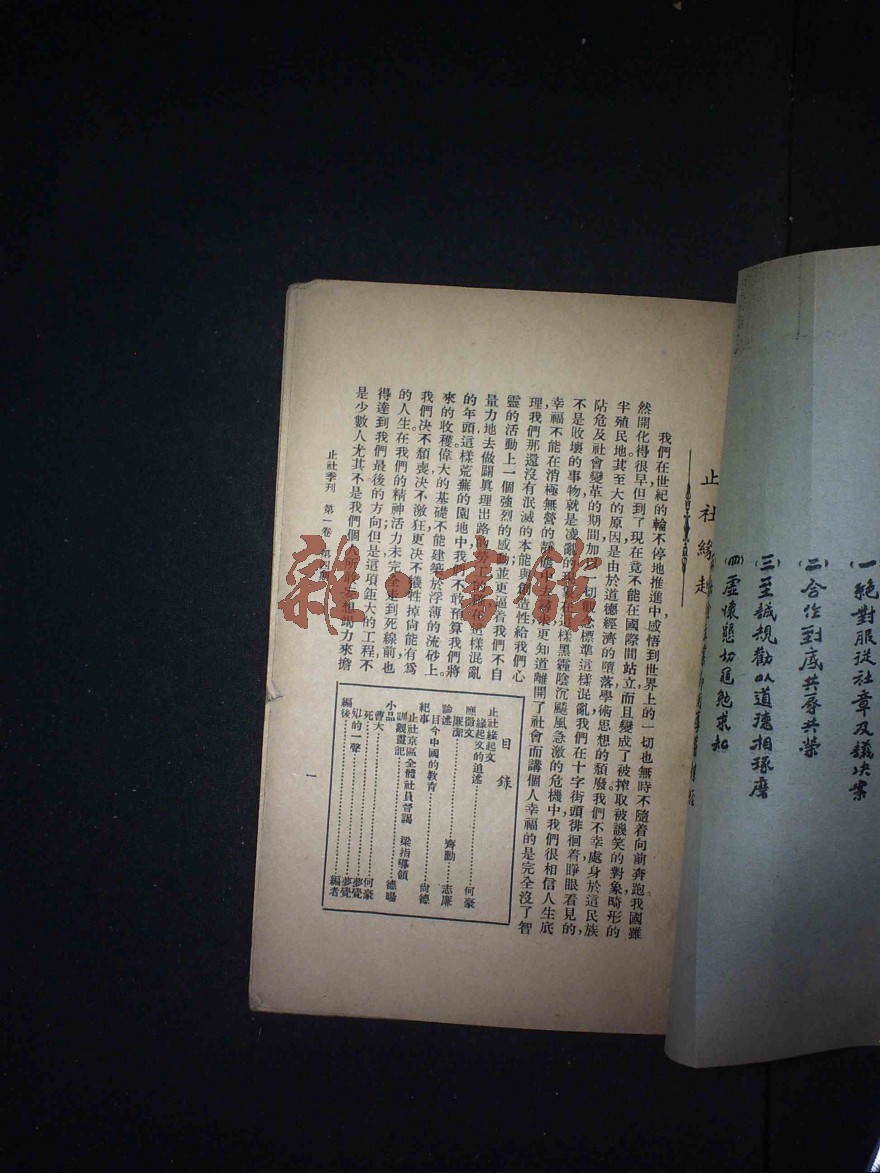 ㈠絕對服從社章及議決案
㈡合作到底共辱共榮
㈢至誠規勸以道德相琢磨
㈣虛懷懇切黽勉求知
止社緣起
我們在世紀的輪不停地推進中,感悟到世界上的一切也無時不隨着向前奔跑,我國雖
然開化得很早,但到了現在竟不能在國際間站立,而且變成了被搾取被譏笑的對象,畸形的
半殖民地。其至大的原因,是由於道德經濟的墮落,學術思想的頹廢。我們不幸處身於這民族
阽危及社會變革的期間,加以一切觀念標準這樣混亂,我們在十字街頭徘徊着,睜眼看見的,
不是敗壞的事物,就是凌亂的 在這樣黑霾陰沉颶風急激的危機中,我們很相信人生底
幸福,不能在消極無營的靜 更知道離開了社會而講個人幸福的是完全沒了智
理,我們那還沒有泯滅的本能與創造性給我們心
靈的活動上一個強烈的感動,並更逼着我們不自
量力地去做闢真理出路的勞工的 在這樣混亂
的年頭,這樣荒蕪的園地中,我們不敢預算我們將
來的收穫。偉大的基礎不能建築於浮薄的流砂上。
我們決不頹喪,決不激狂,更決不犧牲掉尙能有爲
的人生,在我們的精神活力未完全走到死線前,也
得達到我們最後的方向;但是這項鉅大的工程,不
是少數人,尤其不是我們個人所 竭力來擔
目錄
止社緣起文
緣起文的追述………………何豪
應徵文
廉潔………………齊勳 志廉
論述
目今中國的教育………………尙德
紀事
止社京區全體社員晉謁 梁指導領
訓觀畫記………………德暘
小品
曹大………………何豪
死………………夢覺
的一聲………………夢覺
編後………………編者
止社季刊 第一卷 第四
一
雜·書館